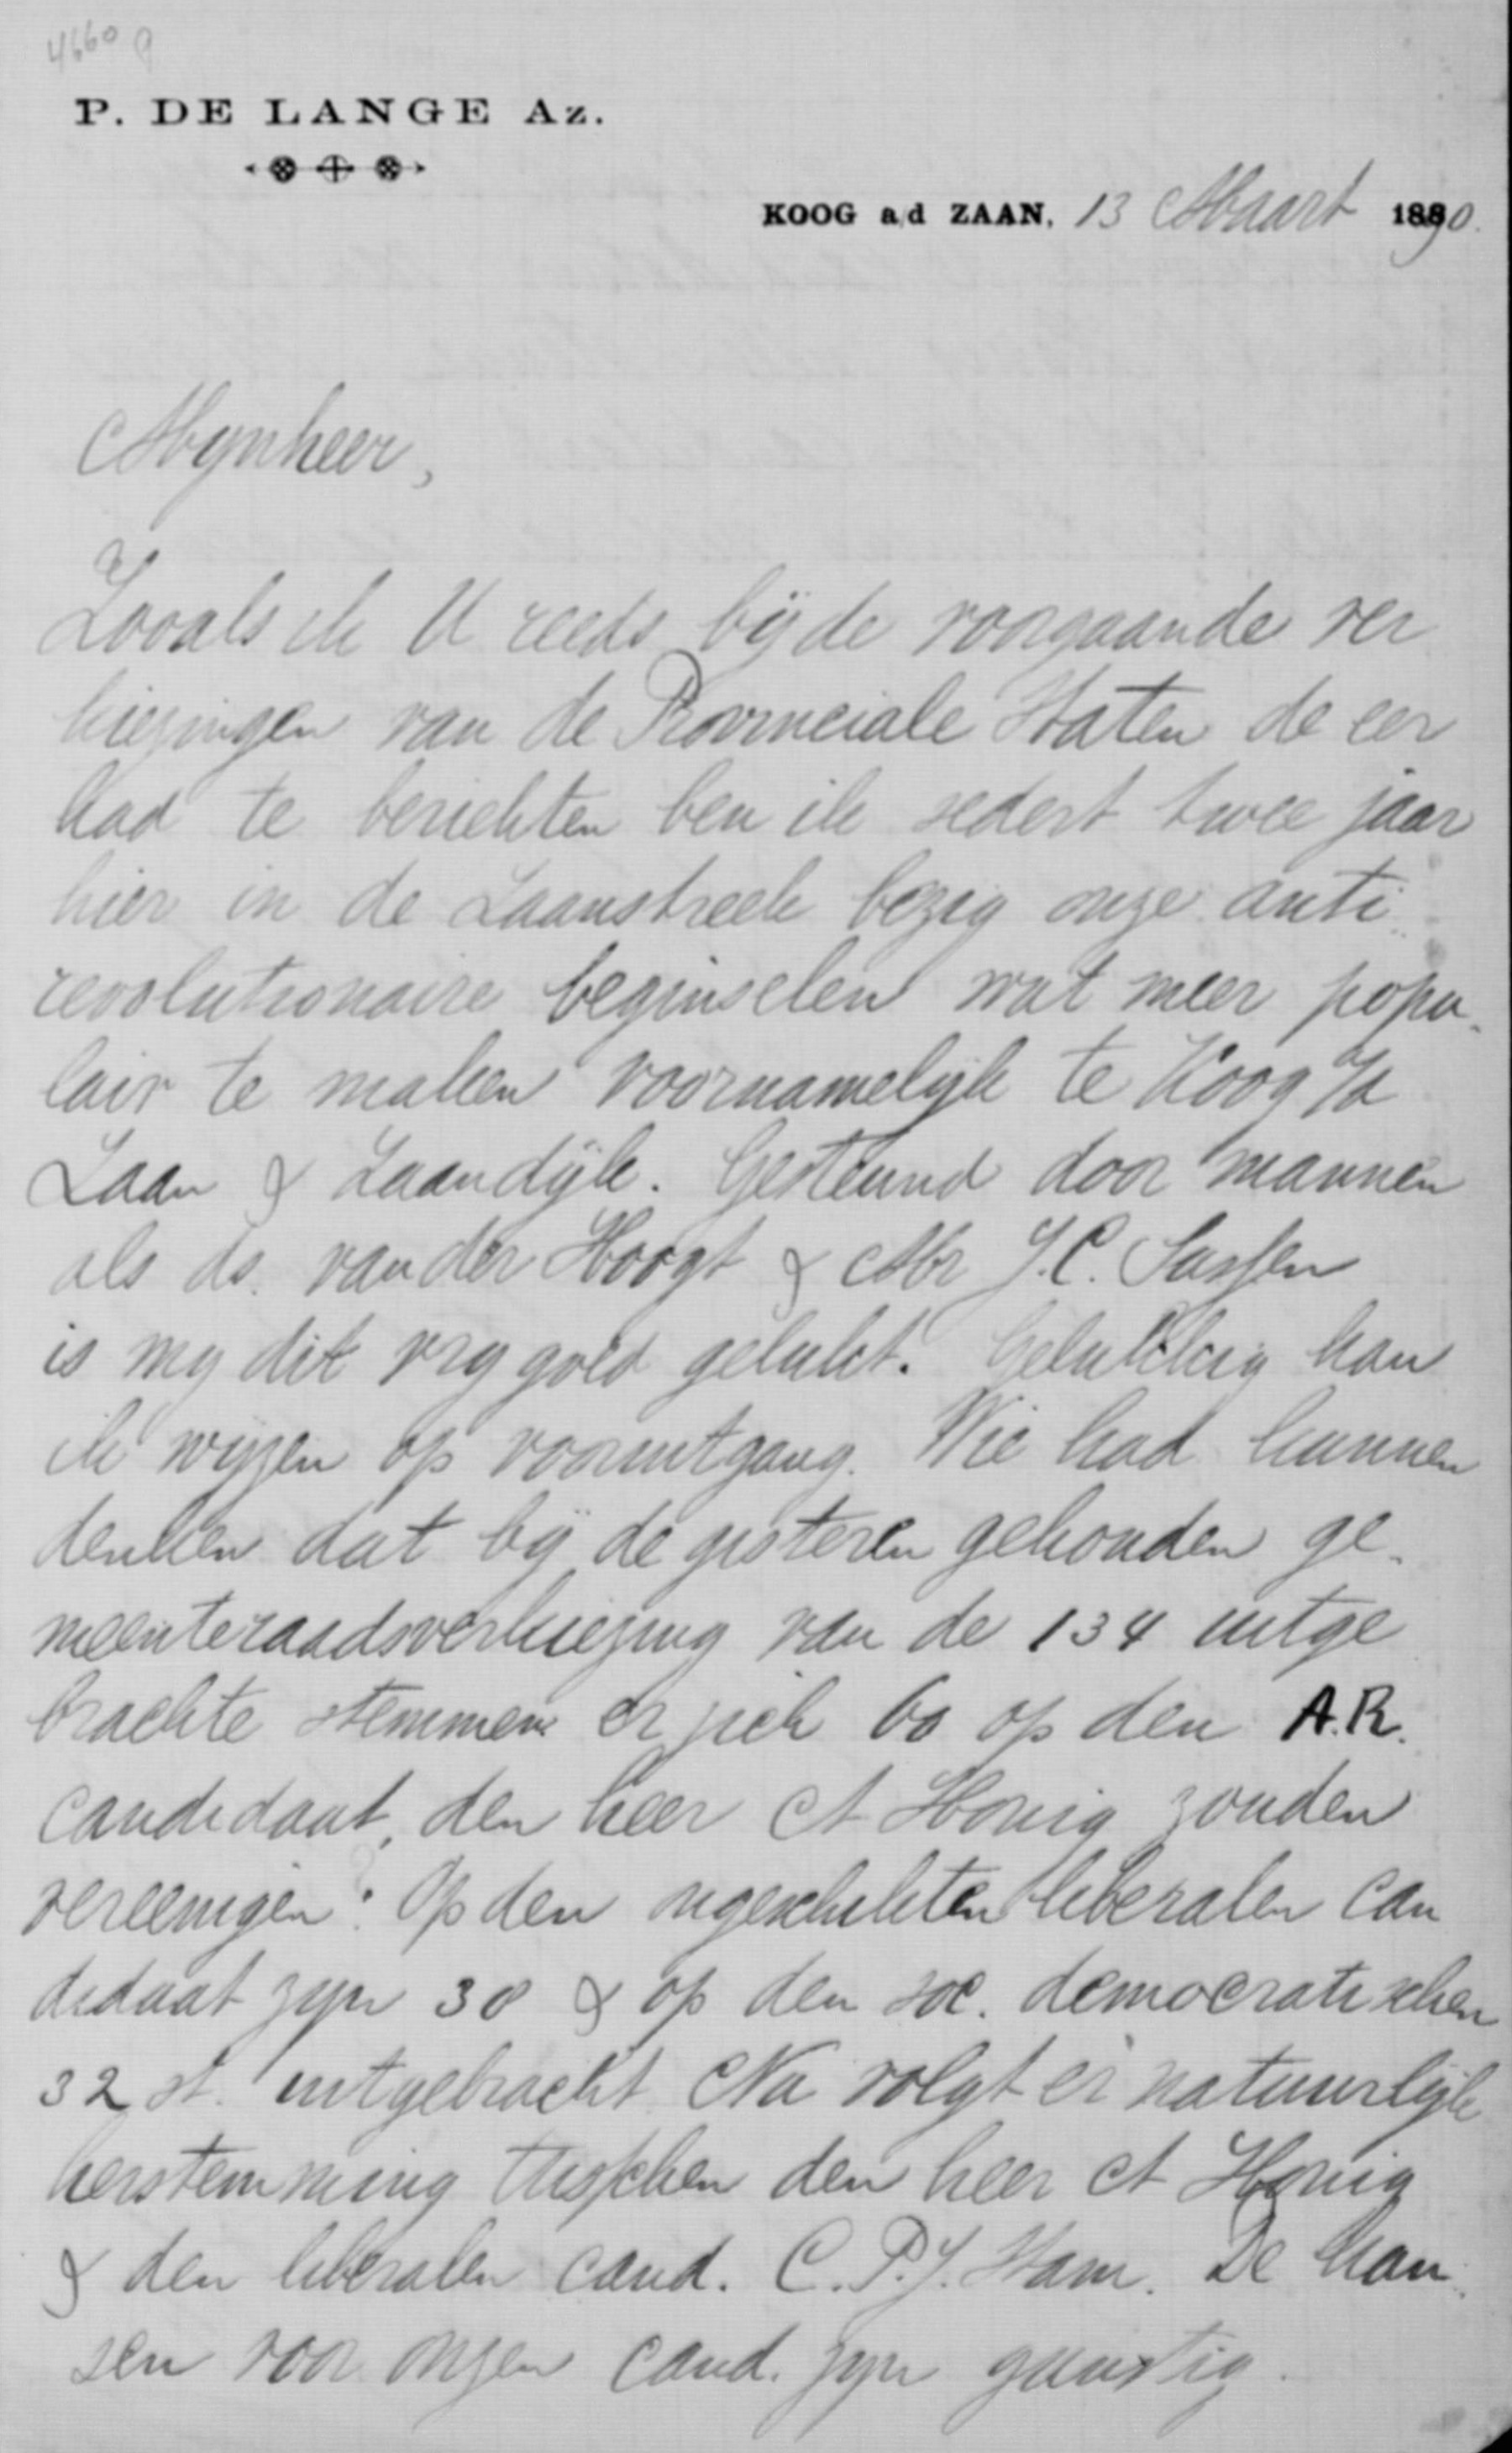 4660 q
P. DE LANGE Az.
KOOG a/d ZAAN, 13 Maart 1890.
Mynheer,
Zooals ik U reeds bij de voorgaande ver
kiezingen van de Provinciale Staten de eer
had te berichten ben ik sedert twee jaar
hier in de Zaanstreek bezig onze anti
revolutionaire beginselen wat meer popu-
lair te maken voornamelijk te Koog a/d
Zaan & Zaandijk. Gesteund door mannen
als ds. van der Hoogt & Mr J.C. Sassen
is my dit vry goed gelukt. Gelukkig kan
ik wijzen op vooruitgang. Wie had kunnen
denken dat bij de gisteren gehouden ge-
meenteraadsverkiezing van de 134 uitge
brachte stemmen er zich 60 op den A.R.
candidaat, den heer A Honig zouden
vereenigen? Op den liberalen can
didaat zyn 38 & op den soc. democratischen
32 st. uitgebracht. Nu volgt er natuurlijk
herstemming tusschen den heer A Honig
& den liberalen cand. C.P.J. Stam. De kan
sen voor onzen cand. zyn gunstig.